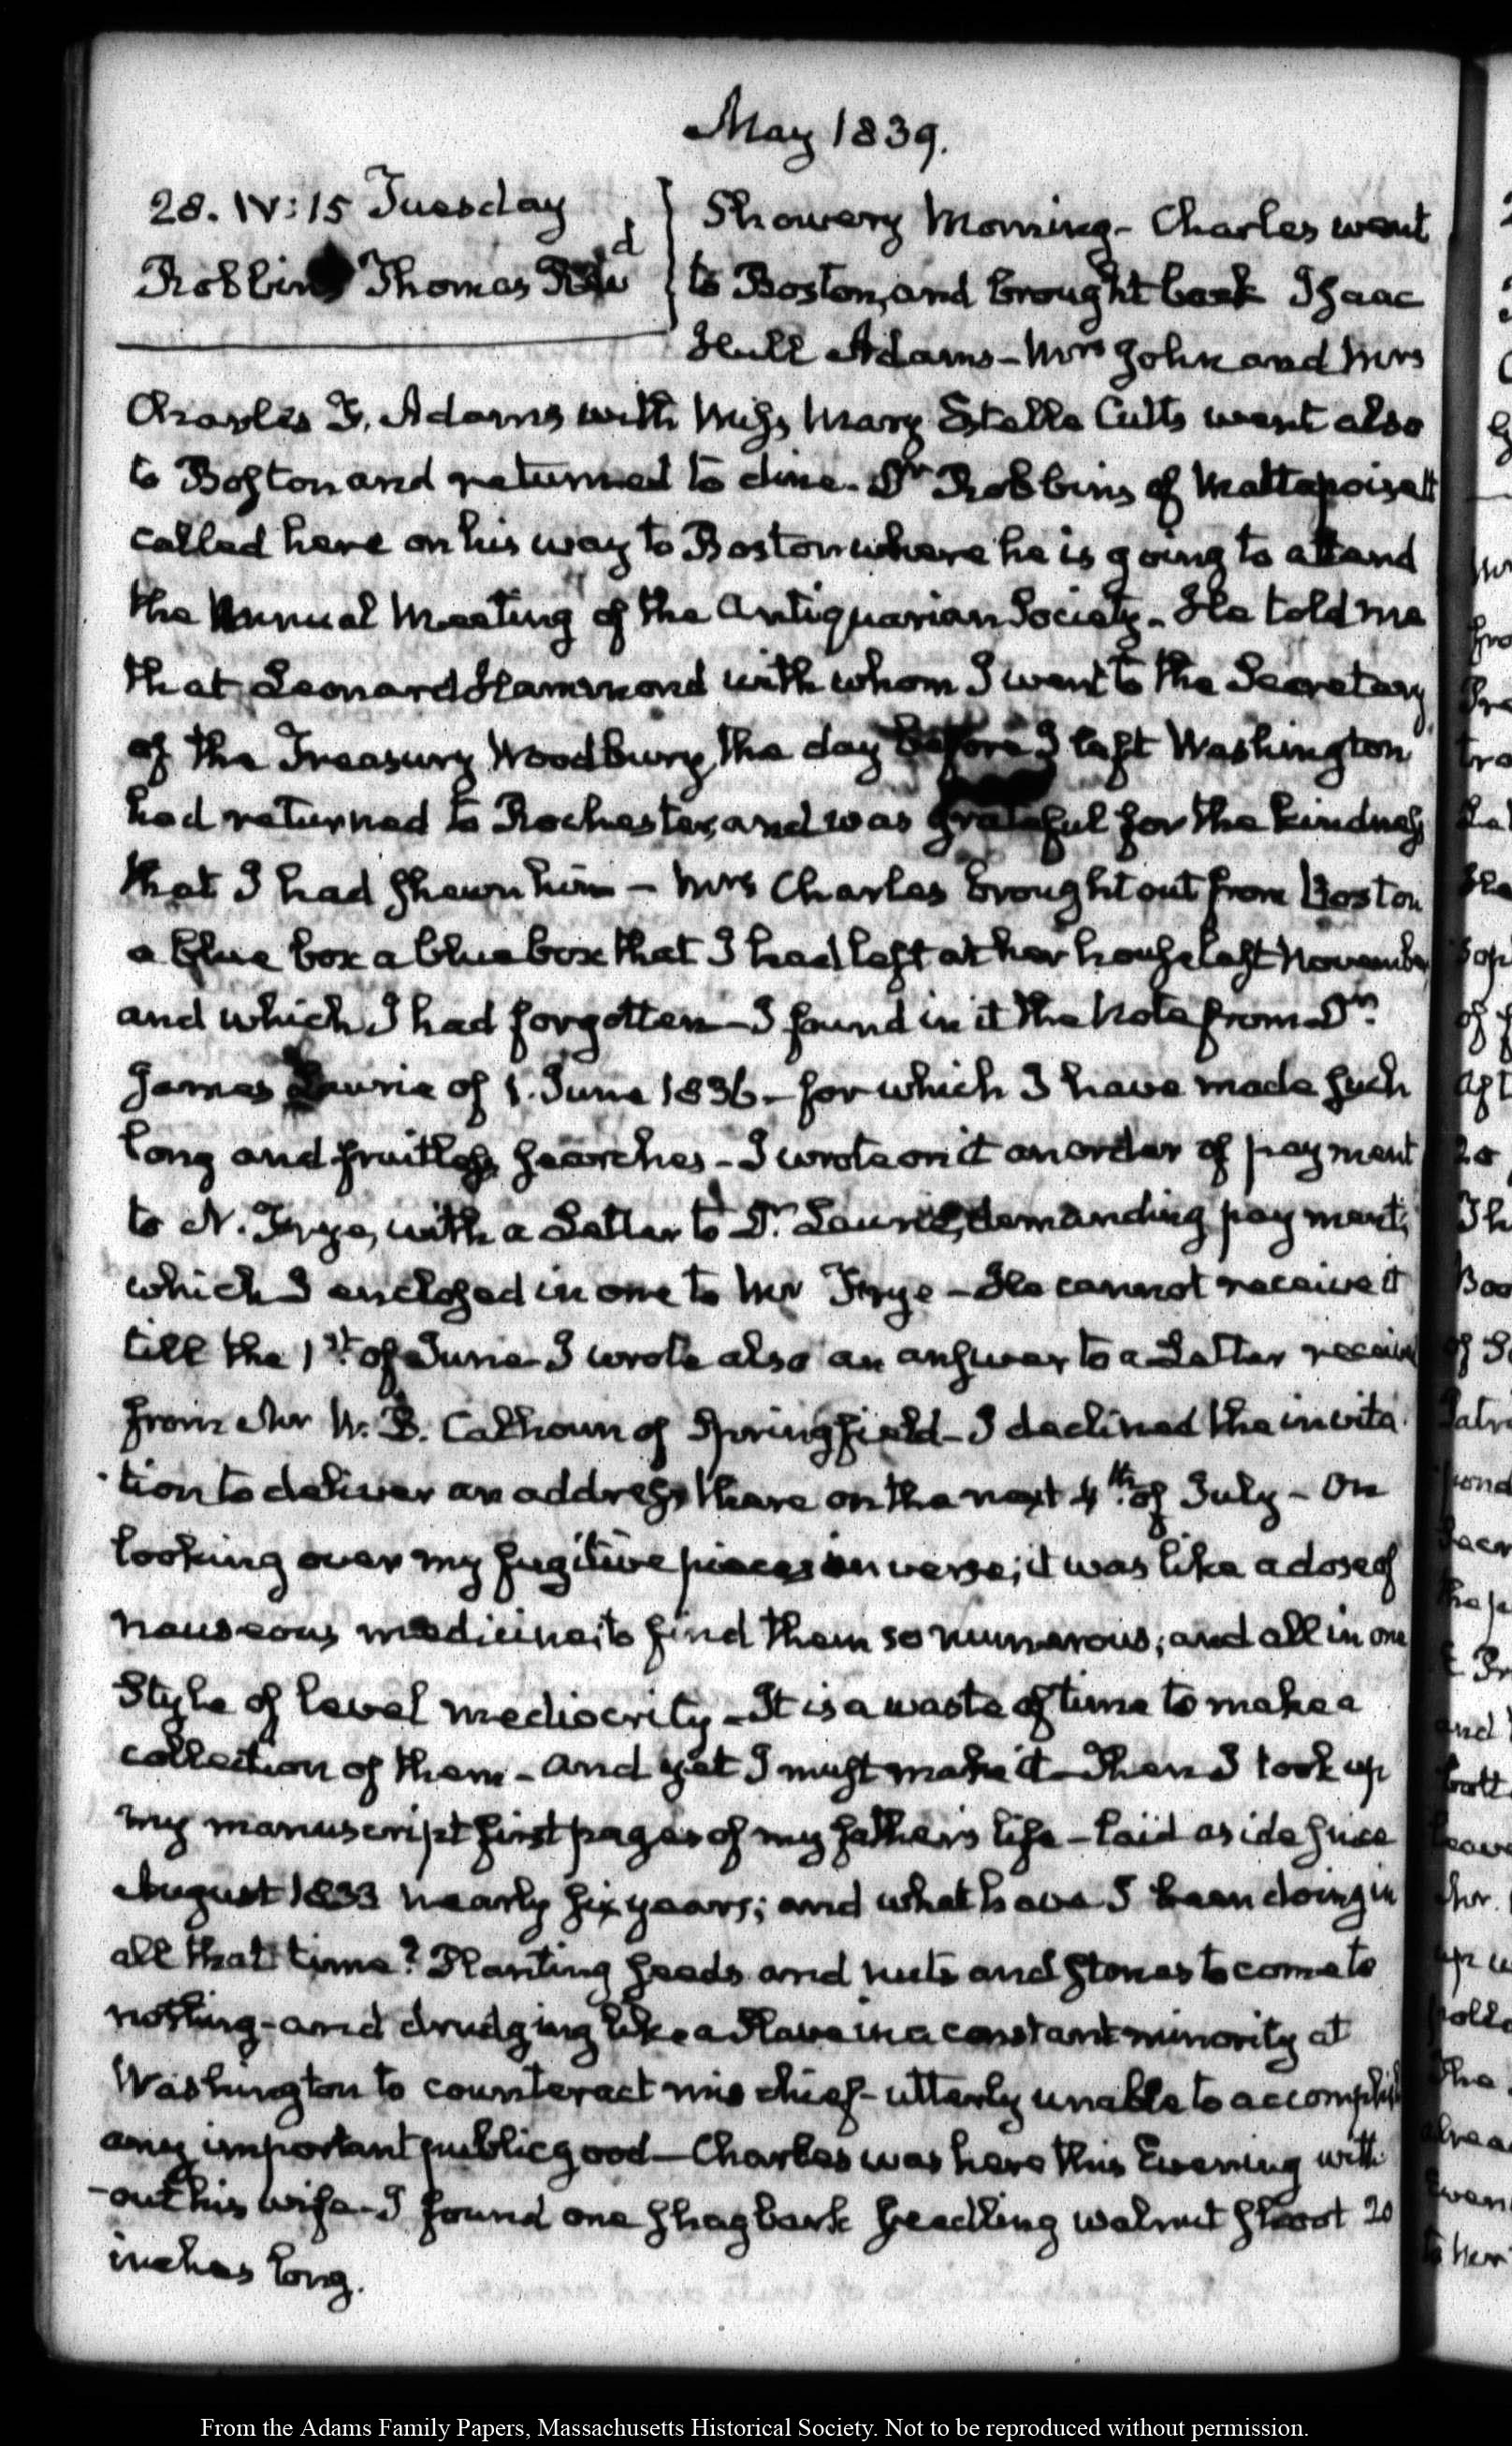 May 1839.
28. IV:15 Tuesday
Robbins Thomas Revd
Showery Morning - Charles went
to Boston, and brought back Isaac
Hull Adams - Mrs John and Mrs
Charles F. Adams with Miss Mary Estelle Cutts went also
to Boston and returned to dine. Dr Robbins of Mattapoisett
called here on his way to Boston where he is going to attend
the Annual Meeting of the Antiquarian Society - He told me
that Leonard Hammond with whom I went to the Secretary
of the Treasury Woodbury, the day before I left Washington
had returned to Rochester, and was grateful for the kindness
that I had shewn him - Mrs Charles brought out from Boston
a blue box a blue box that I had left at her house last November
and which I had forgotten - I found in it the Note from Dr.
James Laurie of 1. June 1836 - for which I have made such
long and fruitless searches - I wrote on it an order of payment
to N. Frye, with a Letter to Dr. Laurie, demanding payment,
which I enclosed in one to Mr Frye - He cannot receive it
till the 1st. of June - I wrote also an answer to a Letter received
from Mr W. B. Calhoun of Springfield - I declined the invita
tion to deliver an address there on the next 4th. of July - On
looking over my fugitive pieces in verse; it was like a dose of
nauseous medicine, to find them so numerous; and all in one
Style of level mediocrity - It is a waste of time to make a
collection of them - and yet I must make it - Then I took up
my manuscript first pages of my father's life - laid aside since
August 1833 nearly six years; and what have I been doing in
all that time? Planting seeds and nuts and stones to come to
nothing - and drudging like a Slave in a constant minority at
Washington to counteract mischief - utterly unable to accomplish
any important public good - Charles was here this Evening with
-out his wife - I found one shagbark seedling walnut shoot 20
inches long.
From the Adams Family Papers, Massachusetts Historical Society. Not to be reproduced without permission.